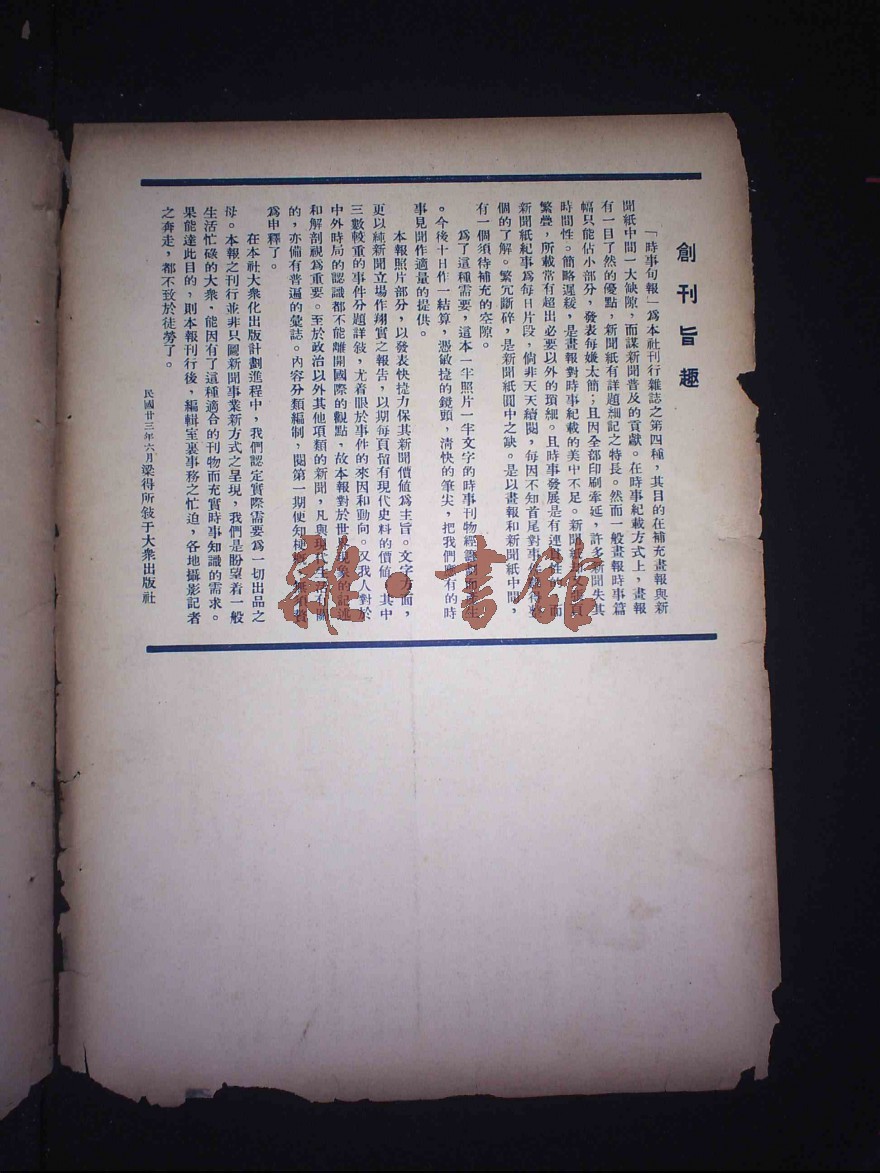 創刊旨趣
「時事旬報」為本社刊行雜誌之第四種，其目的在補充畫報與新
聞紙中間一大缺隙，而謀新聞普及的貢獻。在時事紀載方式上，畫報
有一目了然的優點，新聞紙有詳題細記之特長。然而一般畫報時事篇
幅只能佔小部分，發表每嫌太簡；且因全部印刷牽延，許多新聞失其
時間性。簡略遲緩，是畫報對時事紀載的美中不足。新聞紙
繁疊，所載常有超出必要以外的瑣細。且時事發展是有連 而
新聞紙紀事為每日片段，倘非天天續閱，每因不知首尾對事
個的了解。繁冗斷碎，是新聞紙圓中之缺。是以畫報和新聞紙中間，
有一個須待補充的空隙。
為了這種需要，這本一半照片一半文字的時事刊物經 產生
。今後十日作一結算，憑敏捷的鏡頭，清快的筆尖，把我們 有的時
事見聞作適量的提供。
本報照片部分，以發表快捷力保其新聞價值為主旨。文字方面，
更以純新聞立場作翔實之報告，以期每頁留有現代史料的價值。其中
三數較重的事件分題詳敍，尤着眼於事件的來因和動向。又我人對於
中外時局的認識都不能離開國際的觀點，故本報對於世界現象的記述
和解剖視為重要。至於政治以外其他項類的新聞，凡與現代生活有關
的，亦備有普遍的彙誌。內容分類編制，閱第一期便知梗 無須贅
為申釋了。
在本社大衆化出版計劃進程中，我們認定實際需要為一切出品之
母。本報之刊行並非只圖新聞事業新方式之呈現，我們是盼望着一般
生活忙碌的大衆，能因有了這種適合的刊物而充實時事知識的需求。
果能達此目的，則本報刊行後，編輯室裏事務之忙迫，各地攝影記者
之奔走，都不致於徒勞了。
民國廿三年六月梁得所敍于大衆出版社
雜·書館